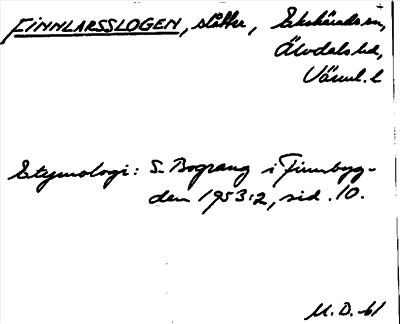 FINNLARSSLOGEN, slåtter, Ekshärads sn,
Älvdals hd,
Värml. l
Etymologi: S. Bograng i Finnbyg-
den 1953:2, sid. 10.
M.D. -61